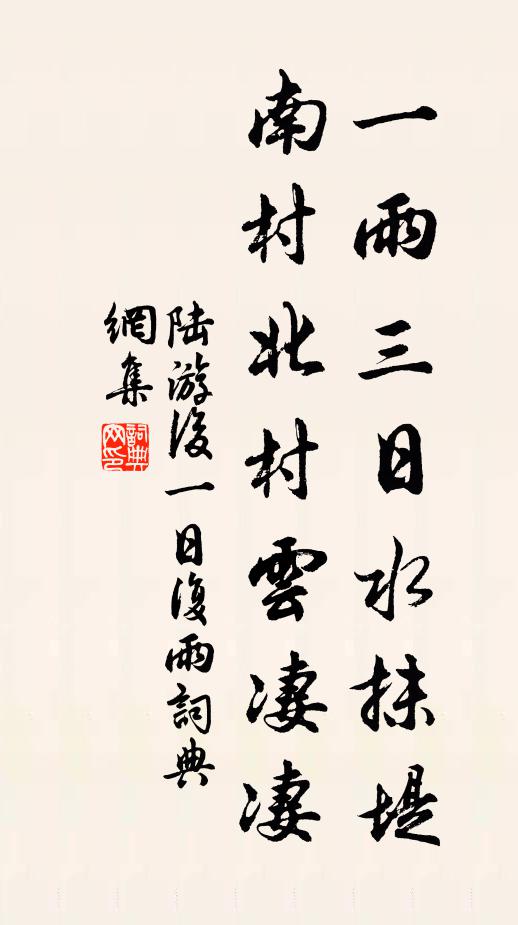 一雨三日水抹堤
南村北村雲凄凄
陆游後一日復雨詞典
網集
詞典
网印